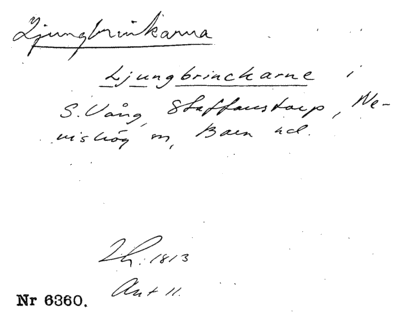 Ljungbrinkarna
Ljungbrinckarne i
S. Vång, Staffanstorp, Ne-
vishög sn, Bara hd.
Lh. 1813
Akt 11.
Nr 6360.